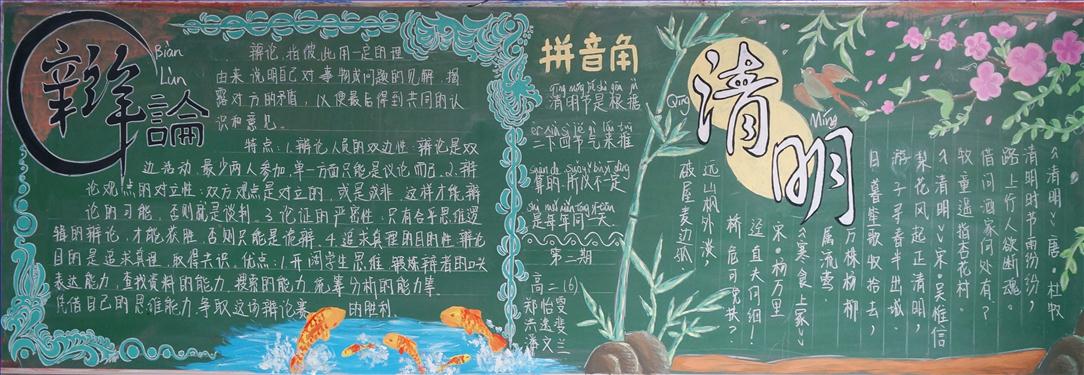 辩論
Biàn
Lùn
辩论,指彼此用一定的理
由来说明自己对事物或问题的见解,揭
露对方的矛盾,以便最后得到共同的认
识和意见。
特点:1.辩论人员的双边性:辩论是双
边活动,最少两人参加,单一方面只能是议论而已.2.辩
论观点的对立性:双方观点是对立的,或是或非,这样才能辩
论的可能,否则就是谈判.3.论证的严密性,只有合乎思维逻
辑的辩论,才能获胜,否则只能是诡辩.4.追求真理的目的性,辩论
目的是追求真理,取得共识.优点:1.开阔学生思维,锻炼辩者的口头
表达能力,查找资料的能力,搜索的能力,统筹分析的能力等
凭借自己的思维能力,争取这场辩论赛的胜利.
拼音角
清明节是根据
二十四节气来推
算的,所以不一定
是每年同一天
第二期
高二(6)
郑怡雯
洪逸斐
潘文兰
Qīng
清
Míng
明
《清明》唐·杜牧
清明时节雨纷纷,
路上行人欲断魂。
借问酒家何处有?
牧童遥指杏花村。
《清明》宋·吴惟信
梨花风起正清明,
游子寻春半出城。
日暮笙歌收拾去,
万株杨柳
属流莺。
《寒食上冢》
宋·杨万里
迳直夫何细!
桥危可免扶?
远山枫外淡,
破屋麦边孤